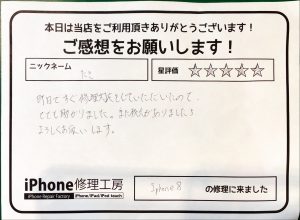 本日は当店をご利用頂きありがとうございます！
ご感想をお願いします！
ニックネーム
星評価 ☆☆☆☆☆
とても助かりました。また機会がありましたら
よろしくお願いします。
iPhone修理工房
iPhone Repair Factory iPhone/iPad/iPod touch
iphone 8 の修理に来ました